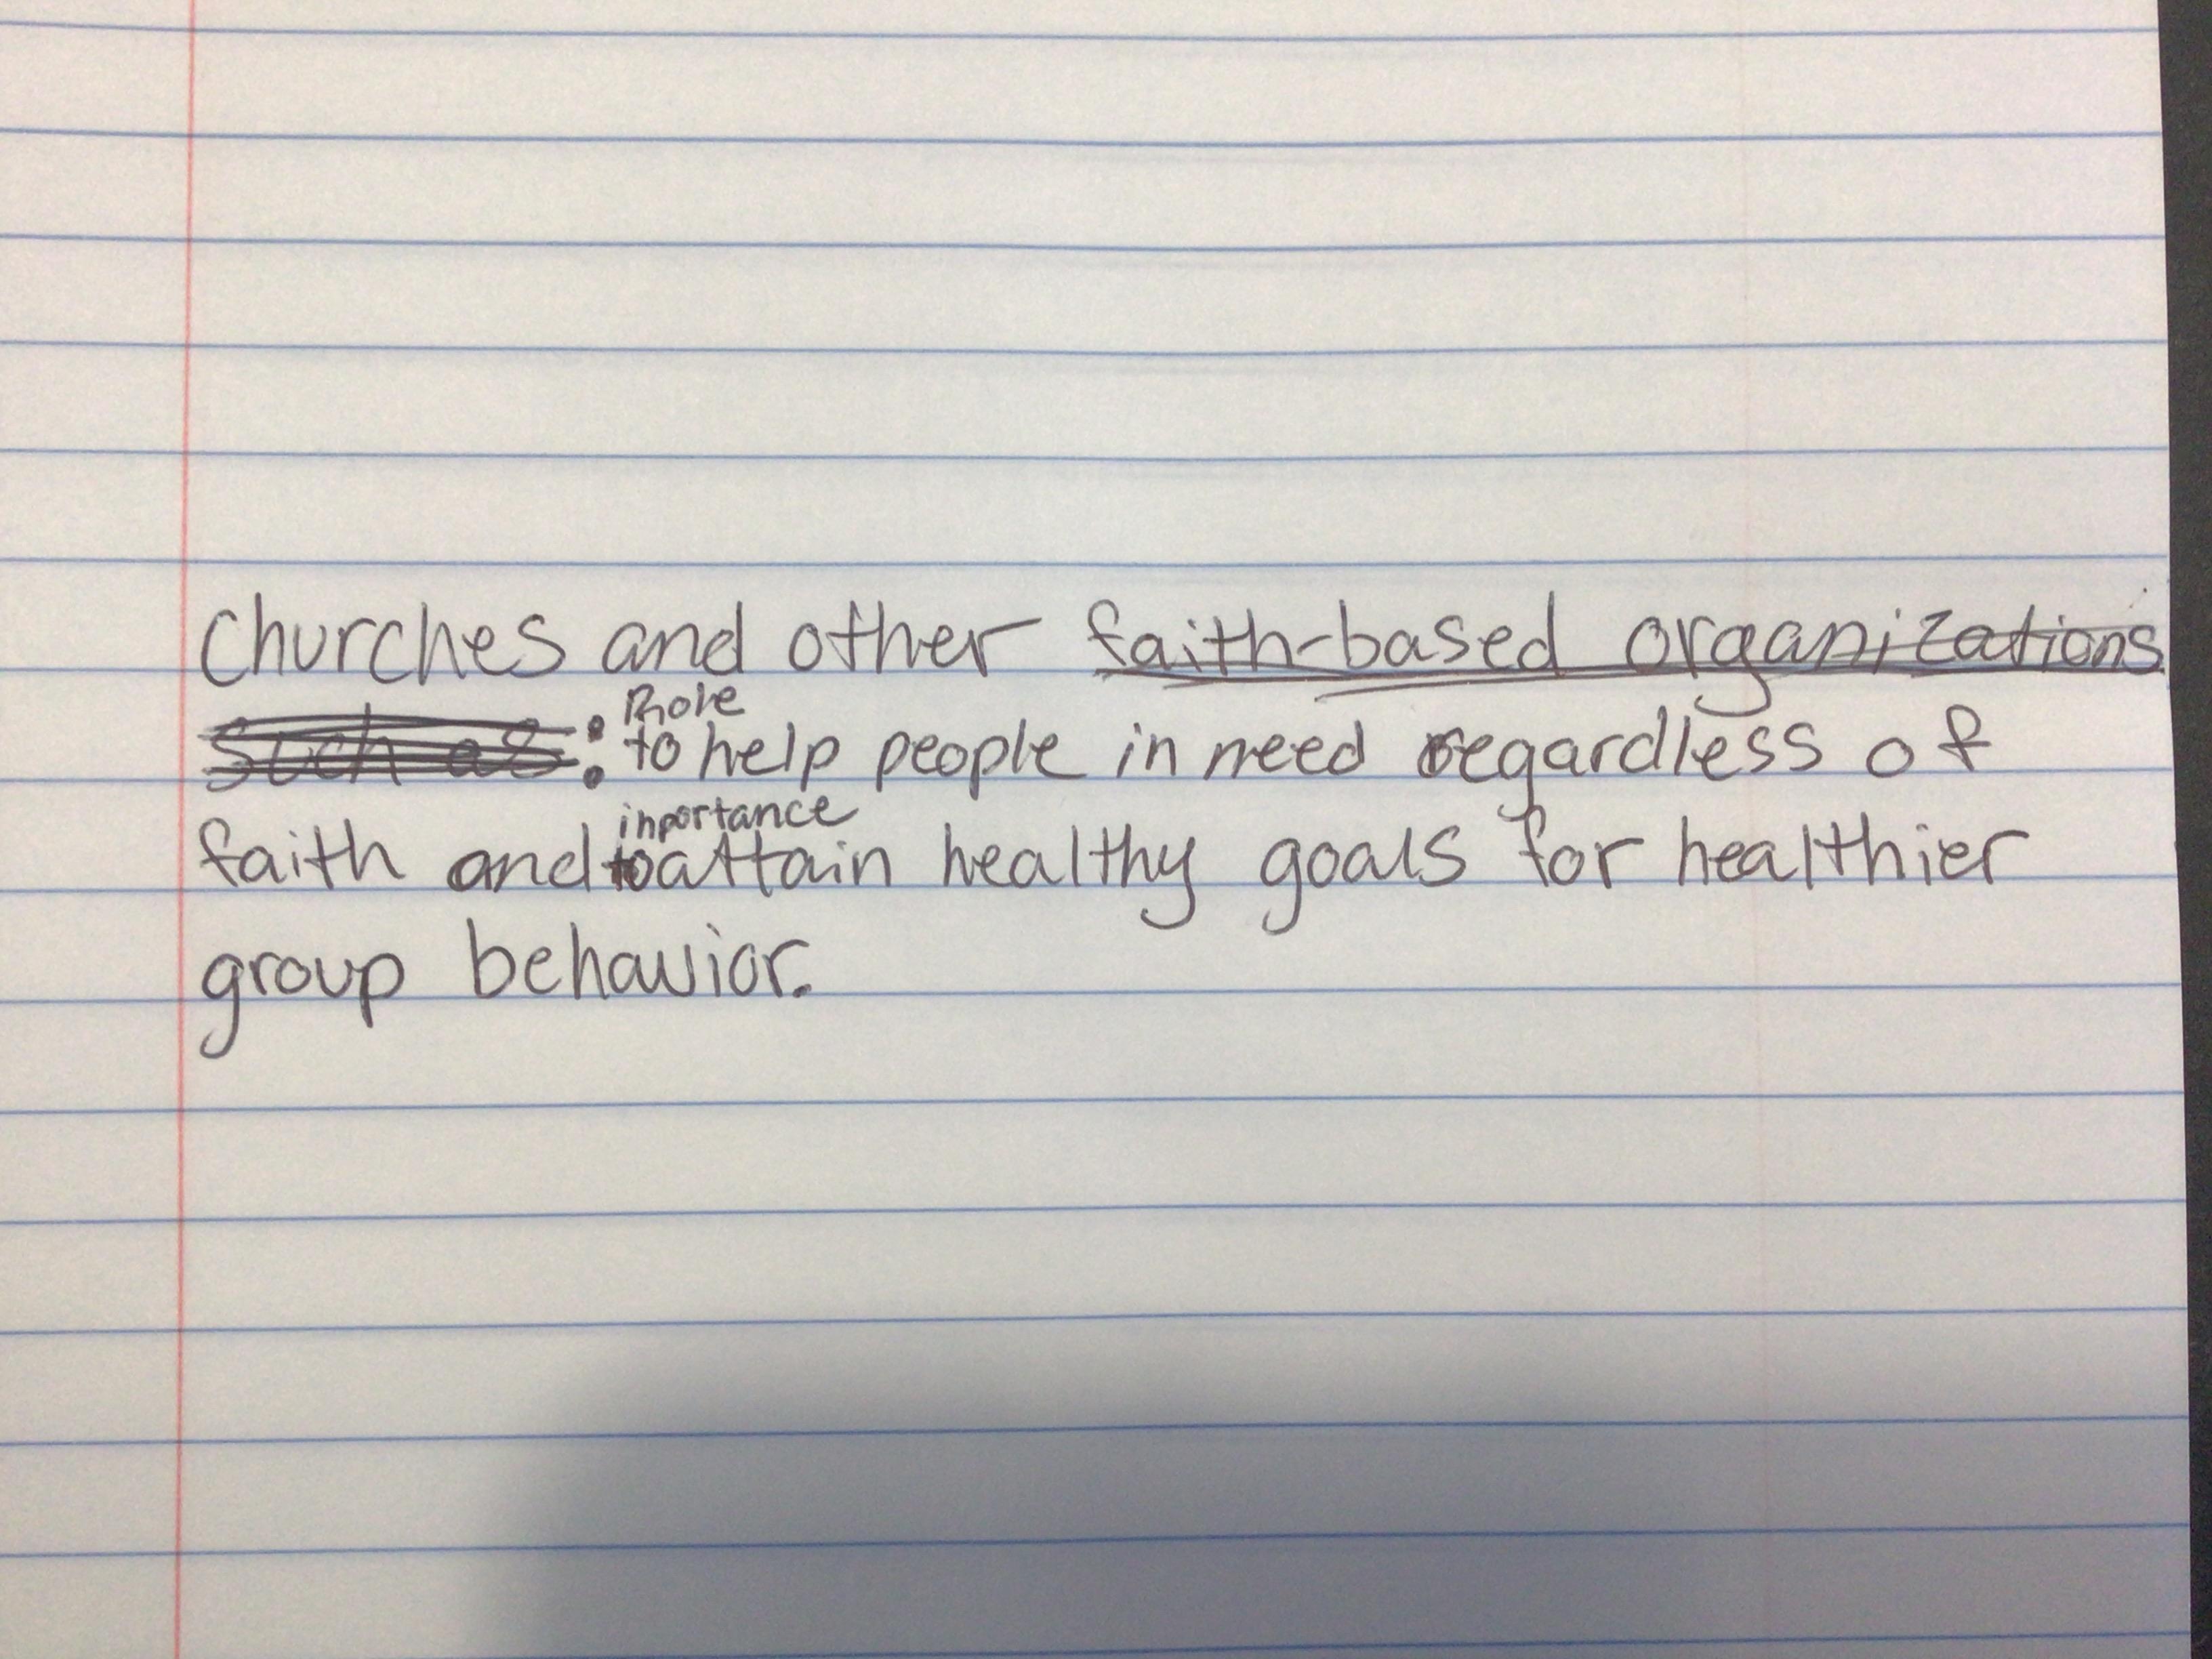 Churches and other faith-based organizations
such as: Role
to help people in need regardless of
inportance
faith and to attain healthy goals for healthier
group behavior.